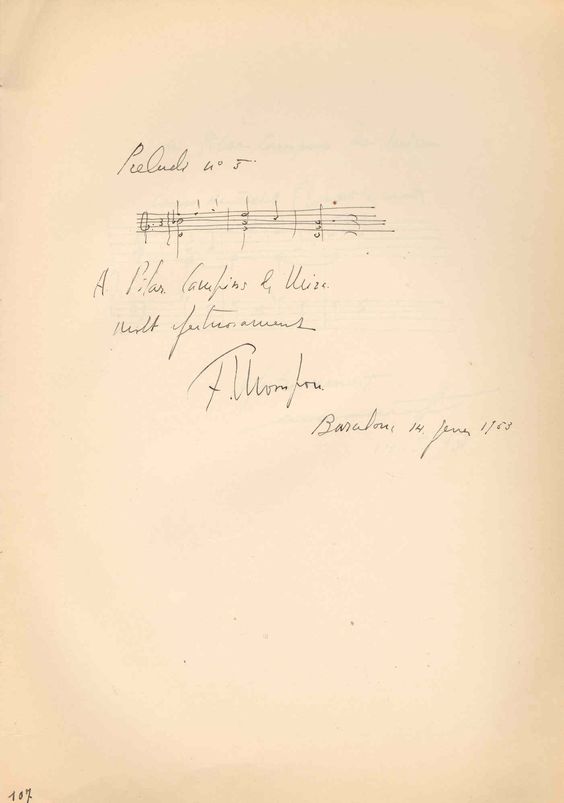 Preludi nº 5.
A Pilar Campins de
molt afectuosament
F. Mompou.
Barcelona 14. gener 1953
107